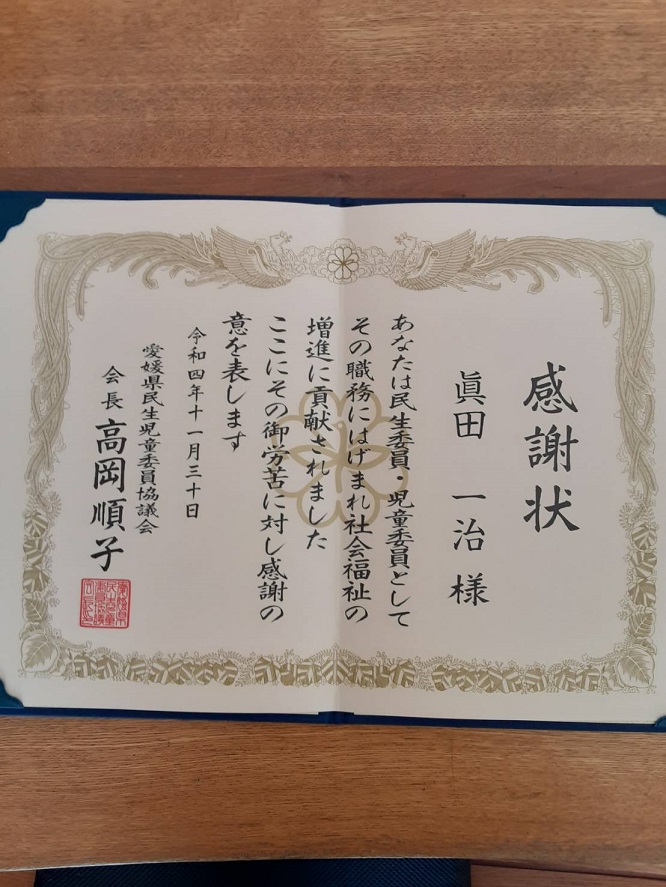 感謝状
眞田 一治 様
あなたは民生委員・児童委員として
その職務にはげまれ社会福祉の
増進に貢献されました
ここにその御労苦に対し感謝の
意を表します
令和四年十一月三十日
愛媛県民生児童委員協議会
会長 高岡順子